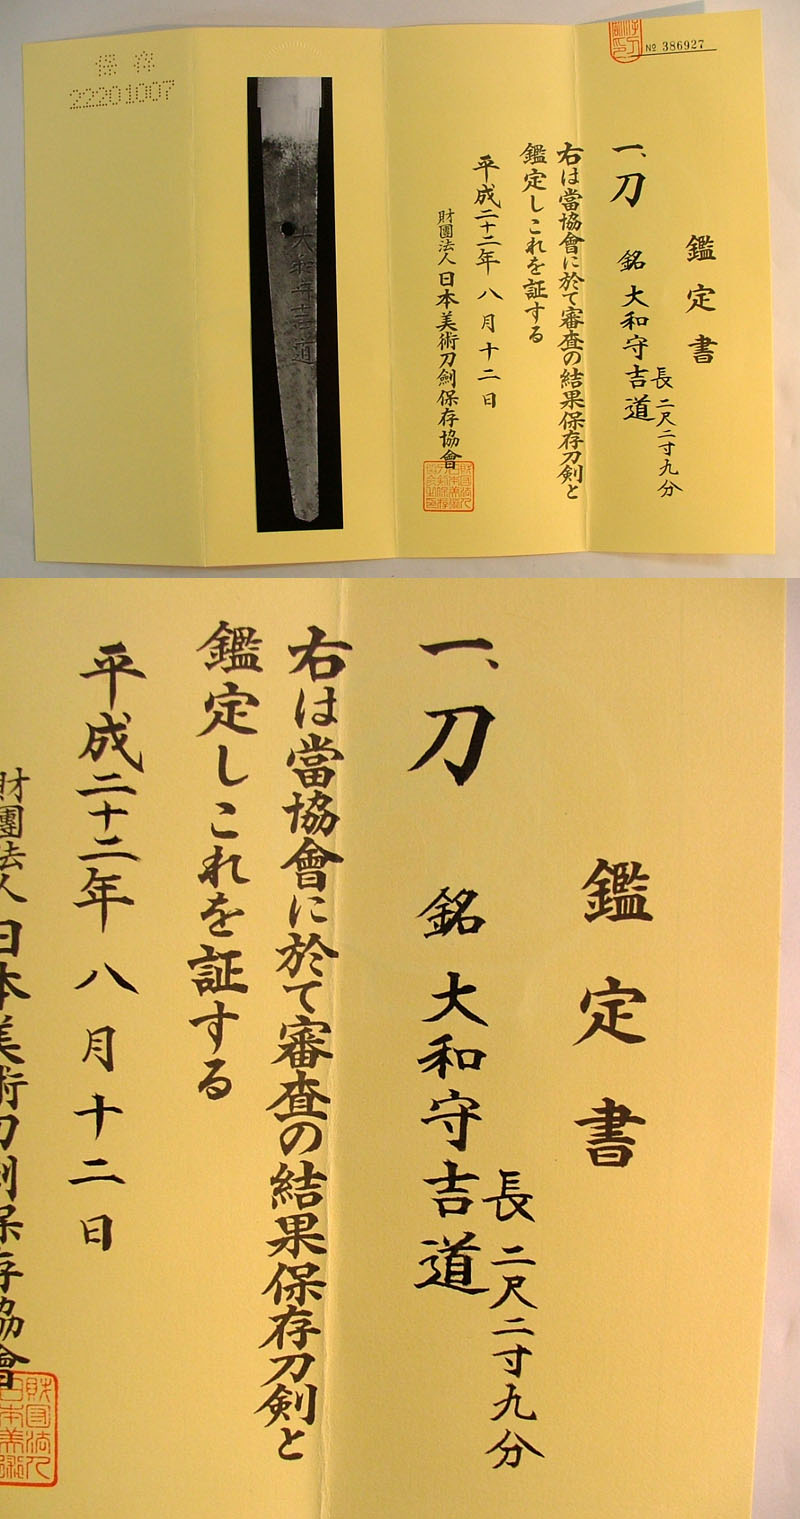 № 386927
鑑定書
一、刀 銘 大和守吉道
長 二尺二寸九分
右は當協會に於て審査の結果保存刀剣と
鑑定しこれを証する
平成二十二年 八月十二日
財團法人 日本美術刀劍保存協會
大和守吉道
保存
22201007
鑑定書
一、刀 銘 大和守吉道
長 二尺二寸九分
右は當協會に於て審査の結果保存刀剣と
鑑定しこれを証する
平成二十二年 八月十二日
財團法人 日本美術刀劍保存協會